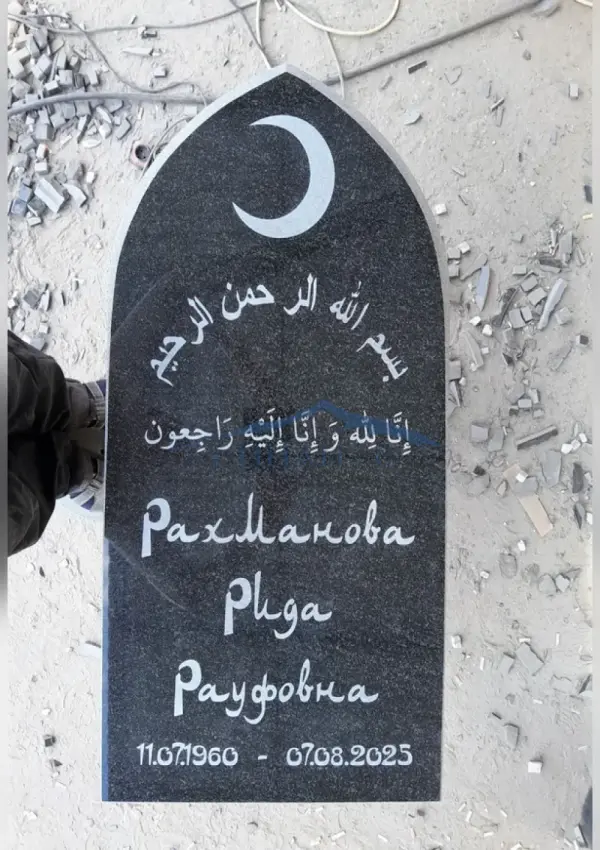 بسم الله الر حمن الرحيم
إِنَّا لِلّٰه وَ إِنَّا إِلَيْهِ رَاجِعون
Рахманова
Рида
Рауфовна
11.07.1960 - 07.08.2025